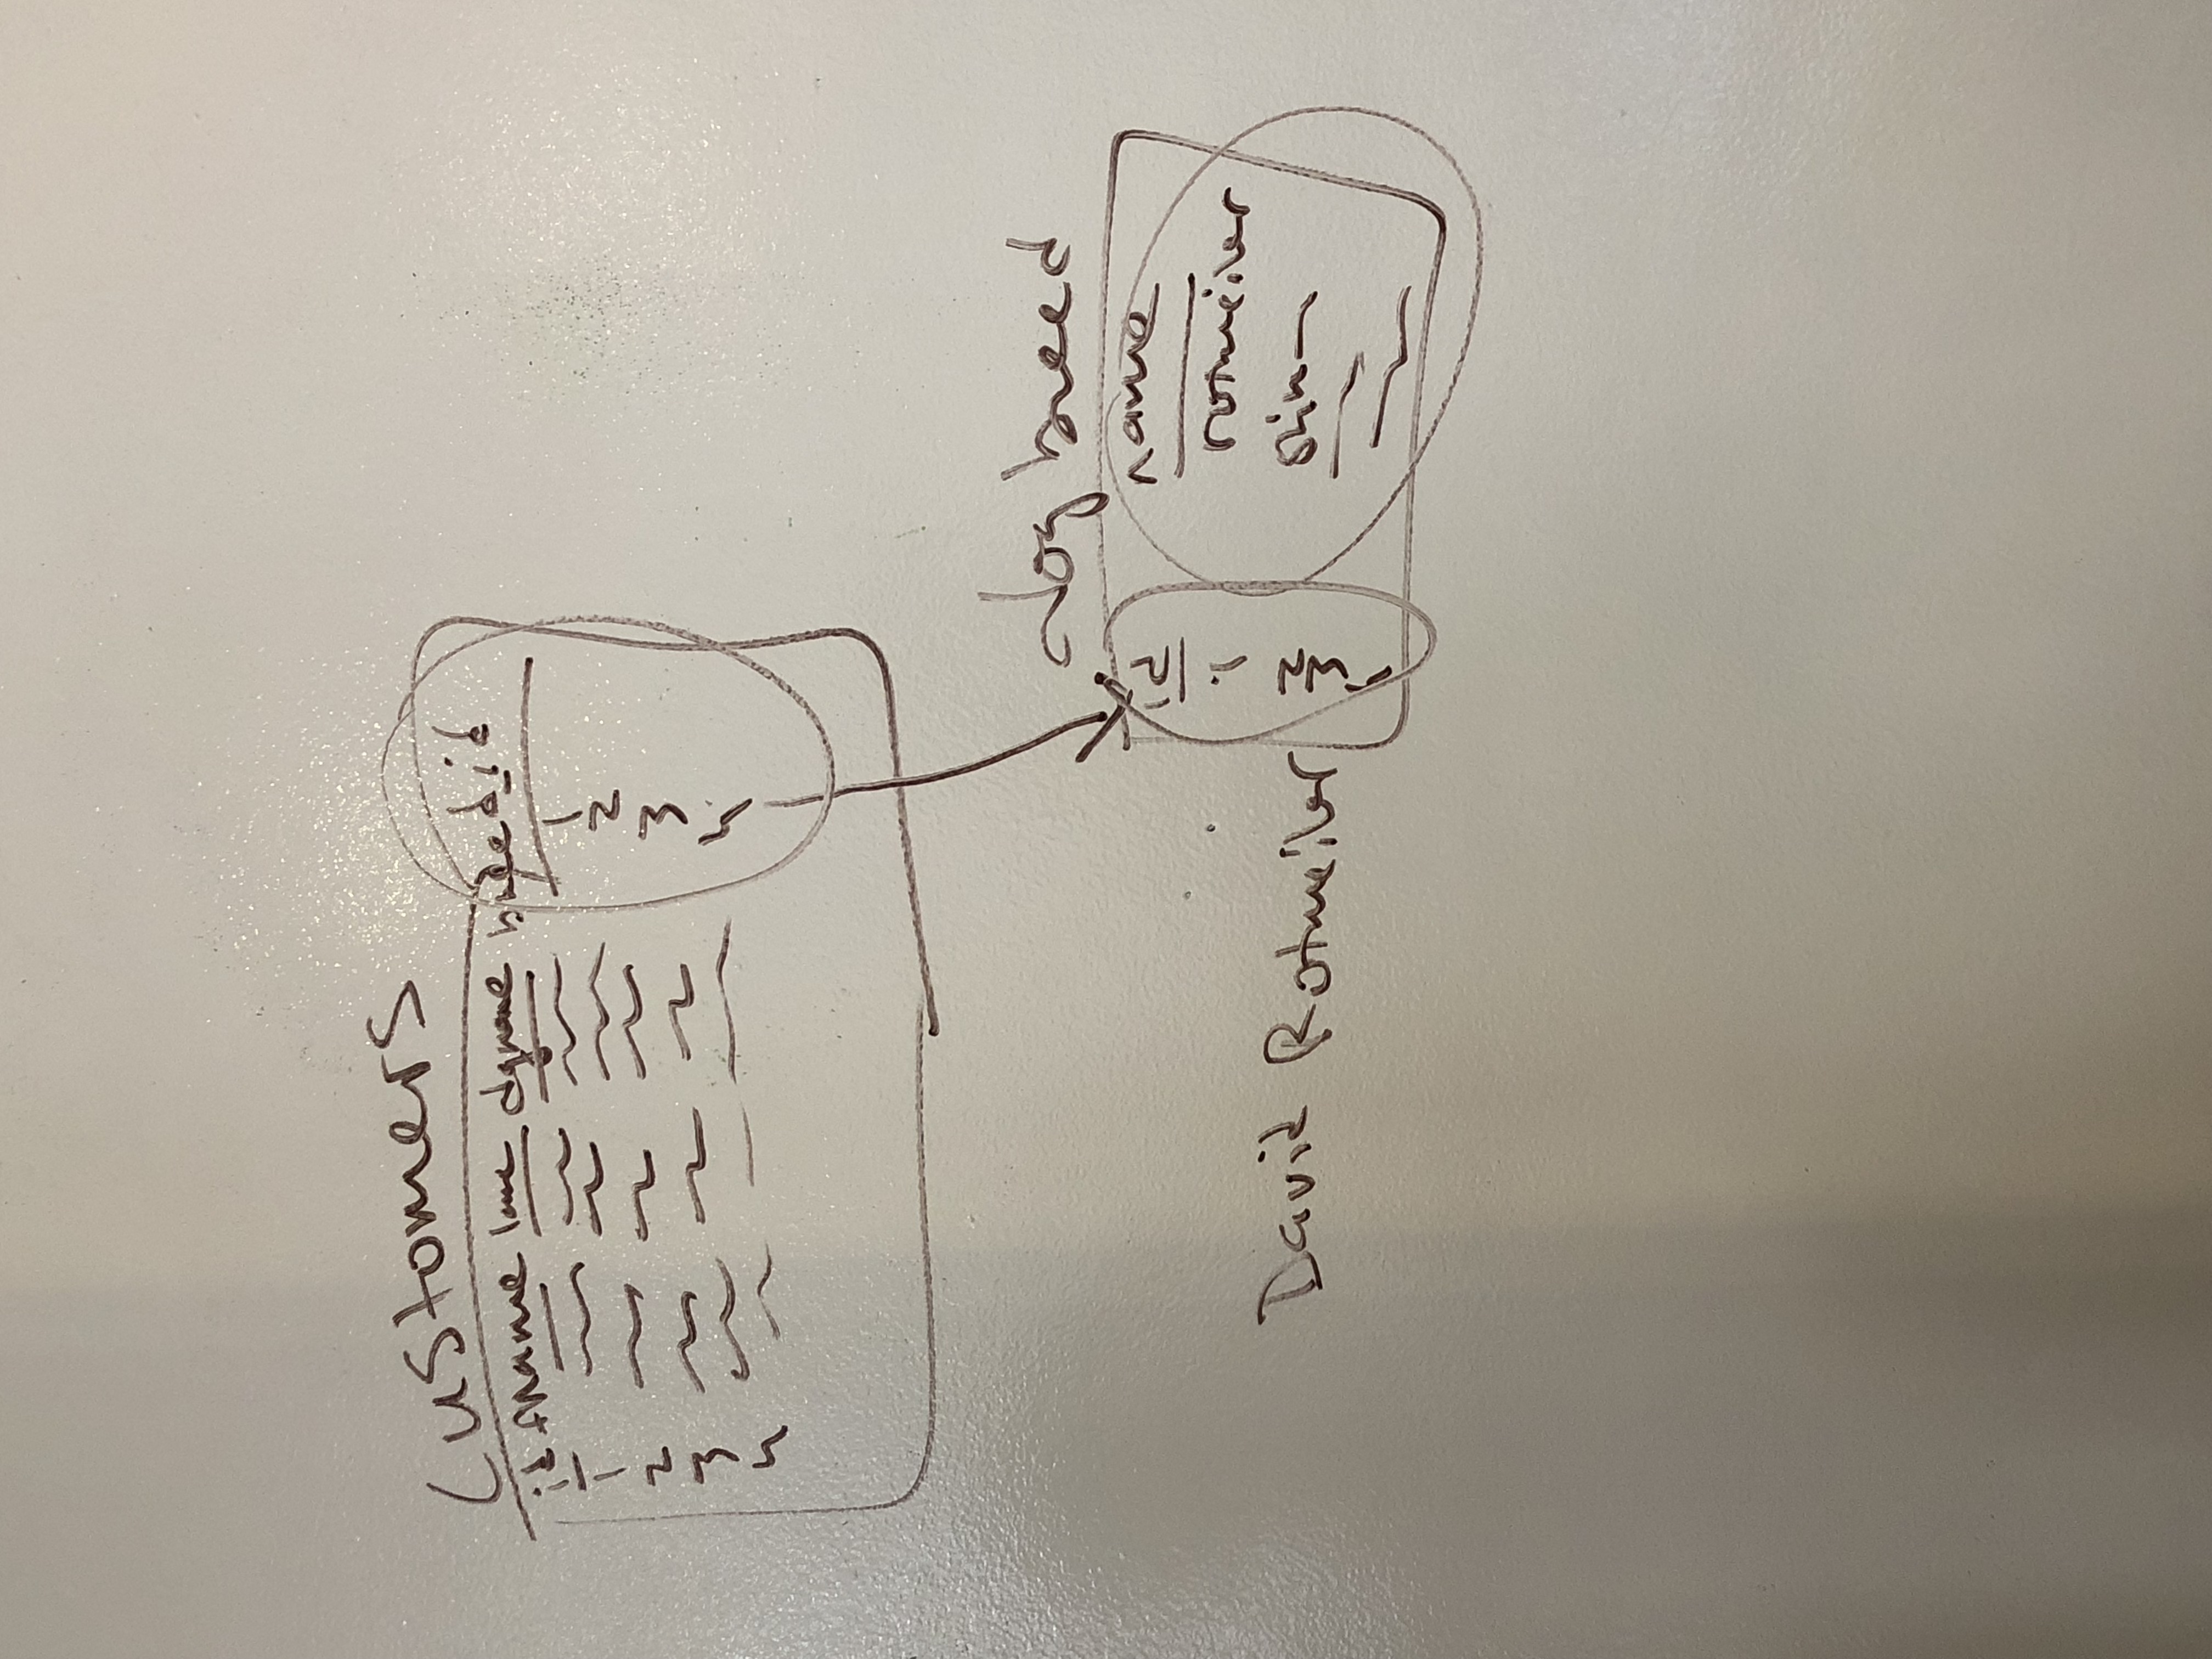 Customers
id fname lname dgname breed_id
1 1
2 2
3 3
4 4
dog breed
id name
1 rotweiler
2
3
David Rotweiler